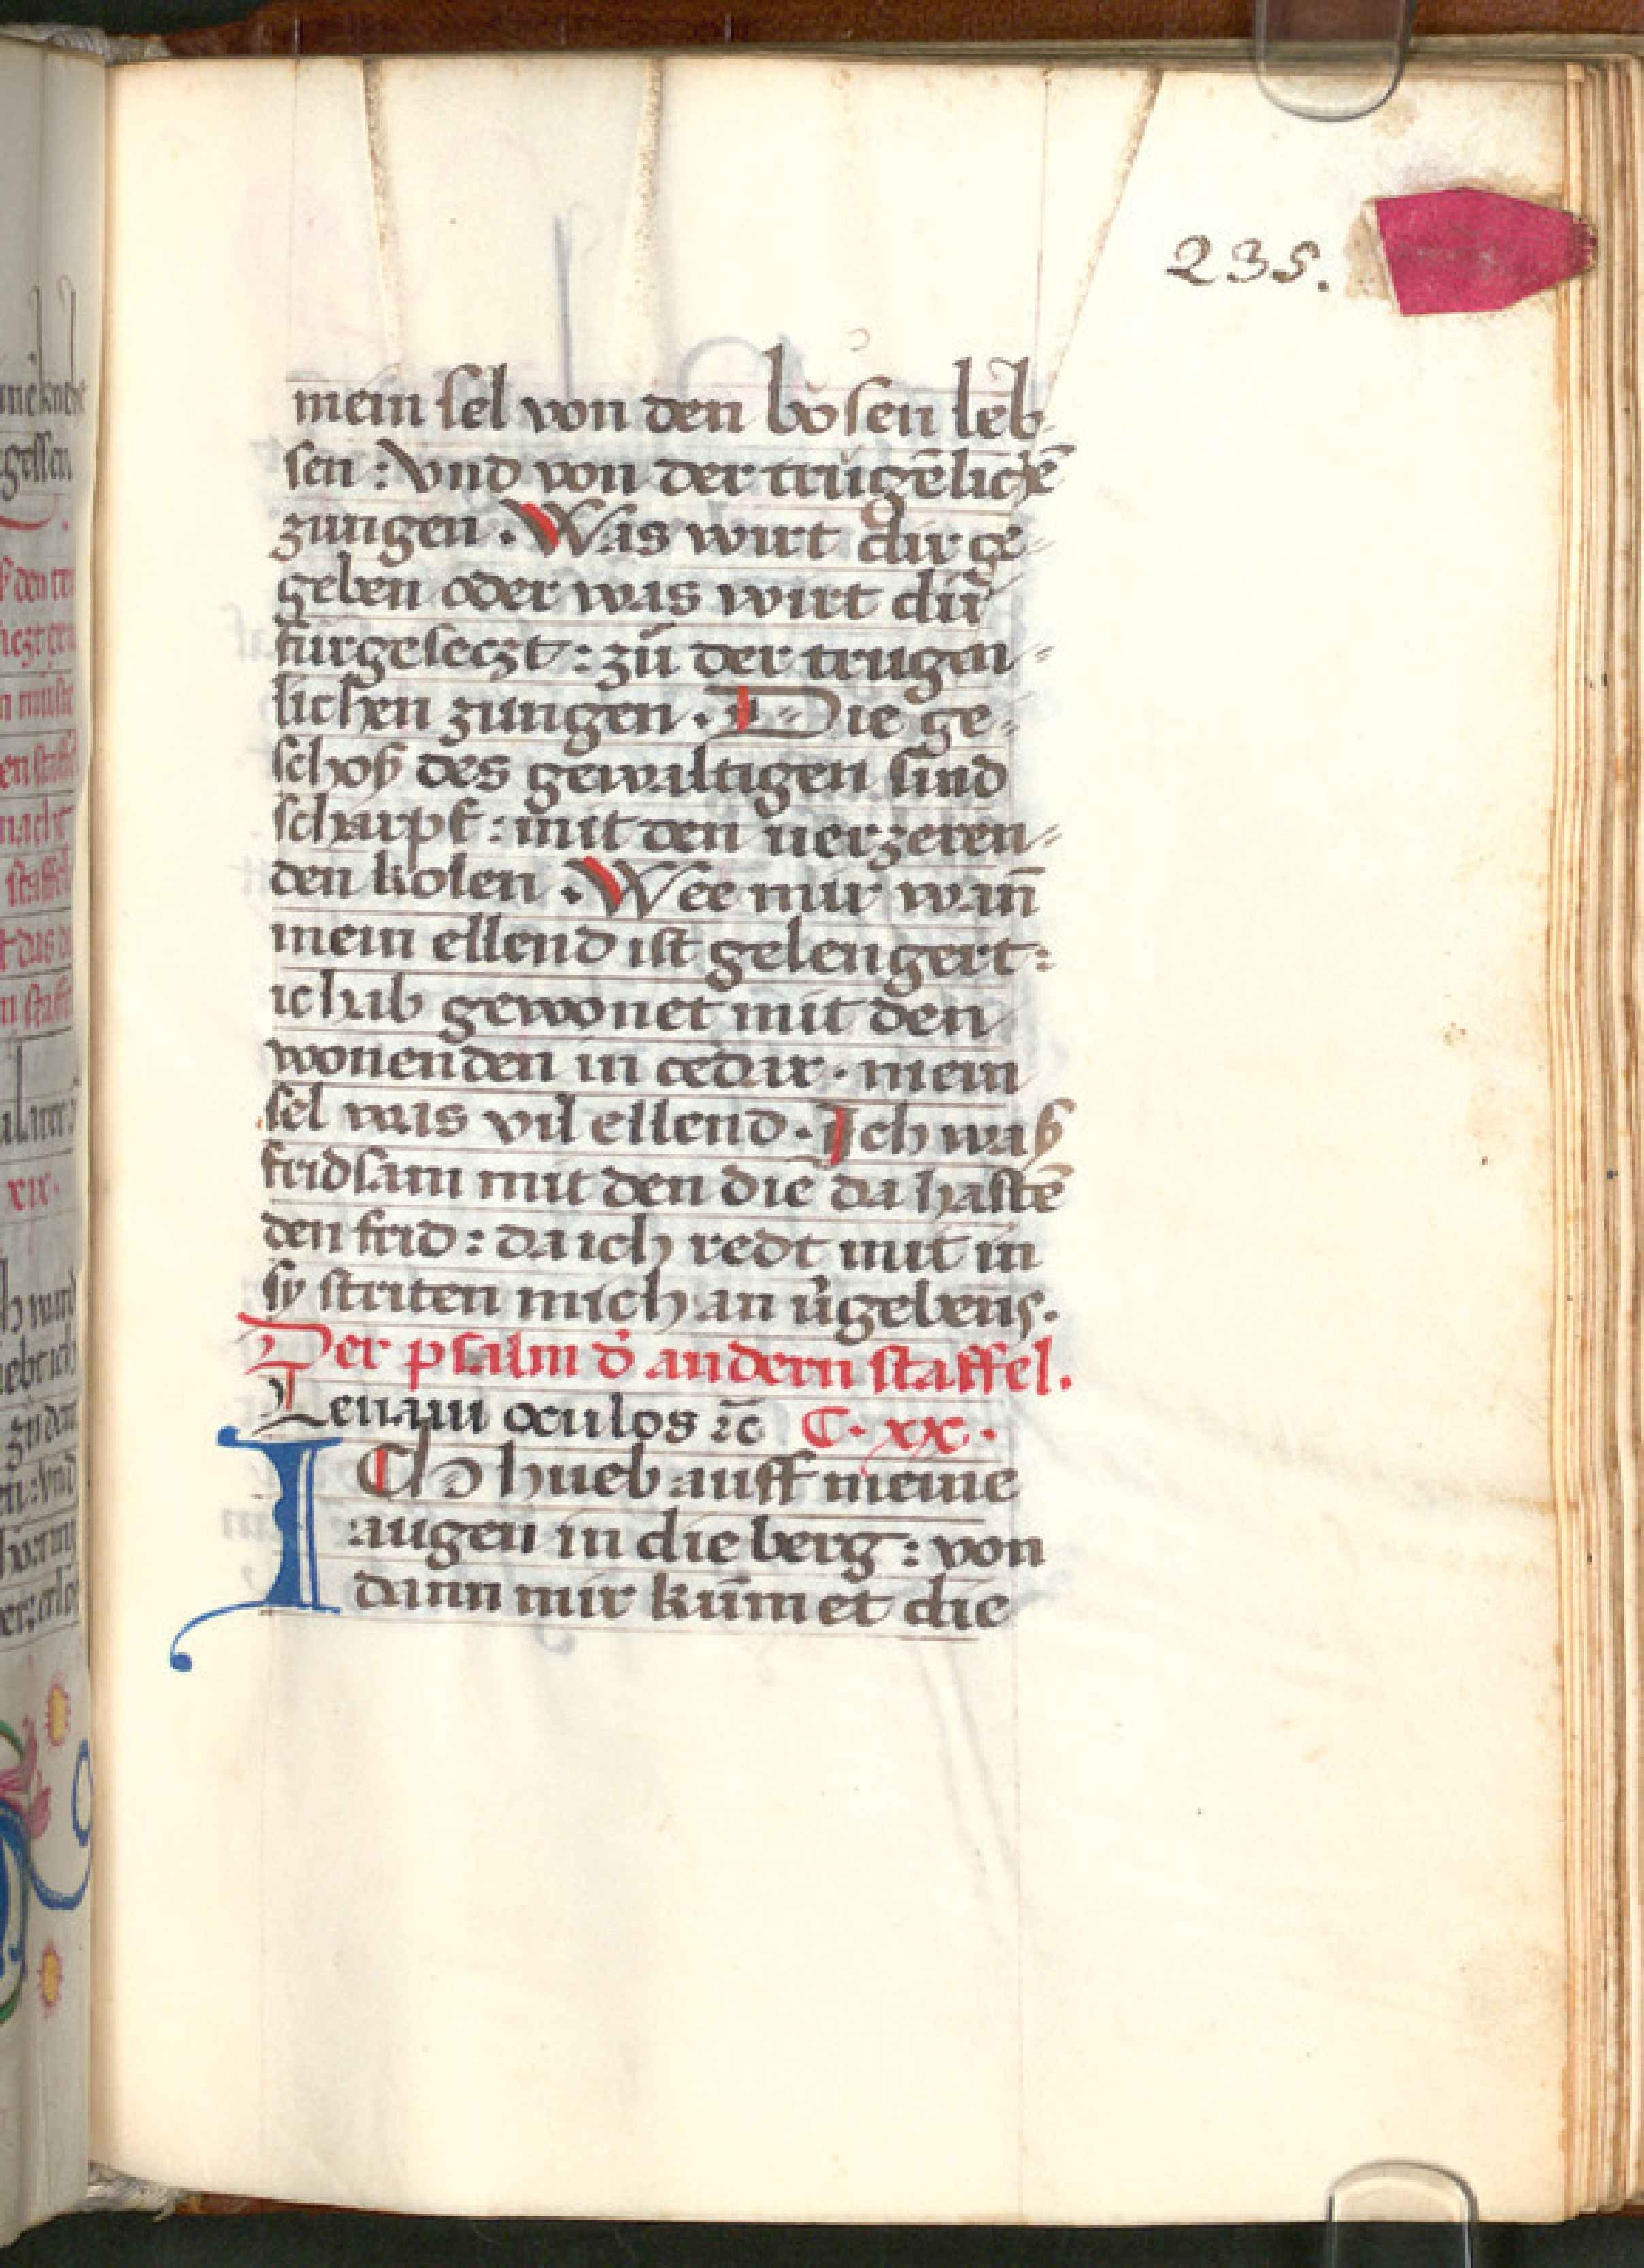 235.
mein sel von den bösen leb
sen : vnd von der trügēlichē
zungen . Was wirt dir ge-
geben oder was wirt dir
fürgeseczt : zů der trugen-
lichen zungen . Die ge-
schoß des gewaltigen sind
scharpf : mit den uerzeren-
den kolen . Wee mir wañ
mein ellend ist gelengert :
ich hab gewonet mit den
wonenden in cedar . mein
sel was vil ellend . Ich waß
fridsam mit den die da hastē
den frid : da ich redt mit in
sy striten mich an ṽgebens .
Der psalm d̕ andern staffel .
Leuaui oculos ꝛc̄ C . xx .
ICh hueb auff meine
augen in die berg : von
dann mir kum̄et die